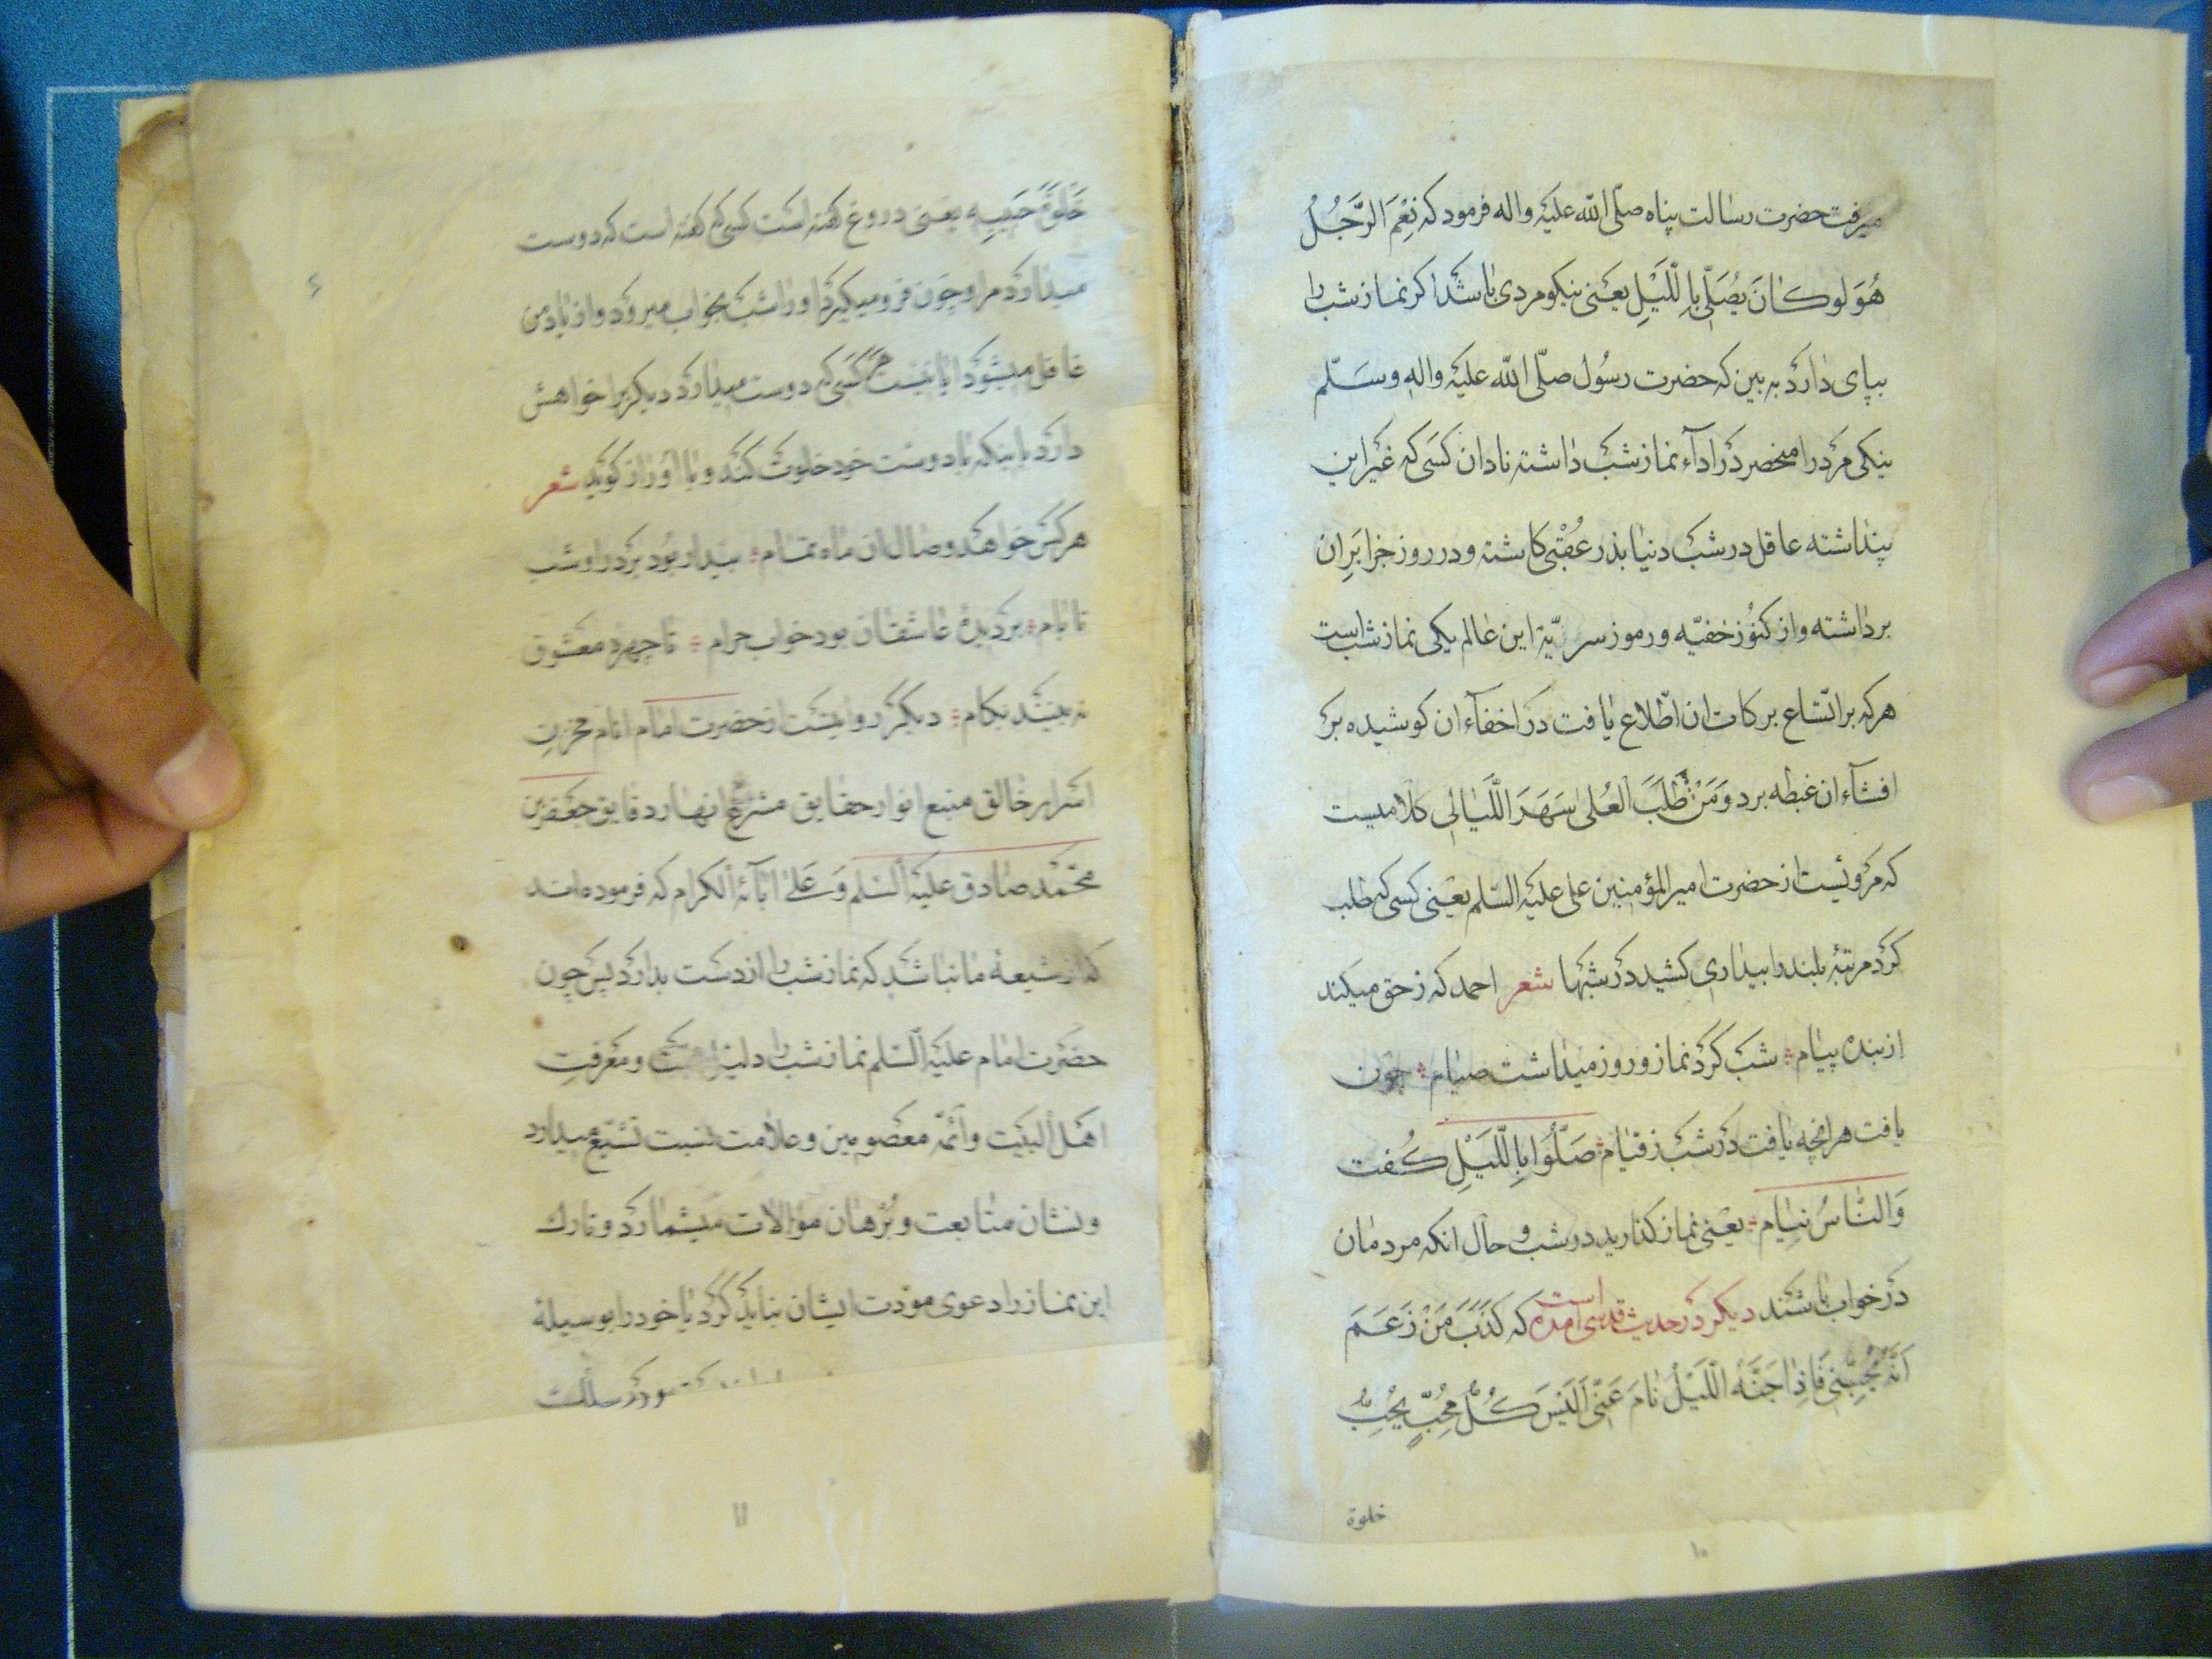 میرفت حضرت رسالت پناه صلّی الله علیه واله فرمود که نِعْمَ الرَّجُلُ
هُوَ لوکانَ یُصَلّی بِاللَّیْلِ یعنی نیکو مردی باشد اگر نماز شب را
بپای دارد به بین که حضرت رسول صلّی الله علیه واله وسلّم
نیکی مرد را منحصر در اداء نماز شب داشته نادان کسی که غیر این
پنداشته عاقل در شب دنیا بذر عُقْبی کاشته و در روز جزا بَرِ ان
برداشته واز کنوز خفیّه ورموز سریّۀ این عالم یکی نماز شب است
هرکه بر اتّساع برکات ان اطّلاع یافت در اخفآء ان کوشیده بر
افشآء ان غبطه برد وَمَنْ طَلَبَ الْعُلی سَهَرَ اللَّیالی کلامیست
که مرویست از حضرت امیرالمؤمنین علی علیه السّلم یعنی کسی که طلب
کرد مرتبۀ بلند را بیداری کشید در شبها شعر احمد که ز حق میکند
از بنده پیام شب کرد نماز و روز میداشت صیام چون
یافت هرانچه یافت در شب ز قیام صَلُّوا بِاللَّیْلِ گفت
وَالنّاسُ نِیام یعنی نماز گذارید در شب و حال انکه مردمان
در خواب باشند دیگر در حدیث قدسی آمده است که کَذَبَ مَنْ زَعَمَ
اَنَّهُ یُحِبُّنی فَاِذا جَنَّهُ اللَّیْلُ نامَ عَنّی اَلَیْسَ کُلُّ مُحِبٍّ یُحِبُّ
خلوة
۱۰
۶
خَلْوَةَ حَبیبِهِ یعنی دروغ گفته است کسی که گفته است که دوست
میدارد مرا و چون فرو میگیرد او را شب بخواب میرود و از یاد من
غافل میشود ایا نیست هر کسی که دوست میدارد دیگریرا خواهش
دارد باینکه با دوست خود خلوت کند و با او راز گوید شعر
هرکس خواهد وصال ان ماه تمام بیدار بود بر در او شب
تا بام بر دیدۀ عاشقان بود خواب حرام تا چهره معشوق
نه بینند بکام دیگر روایتست از حضرت امام انام مخزن
اسرار خالق منبع انوار حقایق مشرع انهار دقایق جعفر بن
محمّد صادق علیه السّلم وَعَلی ابآئه الکرام که فرموده اند
که از شیعۀ ما نباشد که نماز شب را از دست بدارد پس چون
حضرت امام علیه السّلم نماز شب را دلیل محبت ومعرفت
اهل البیت وائمّه معصومین وعلامت نسبت تشیّع میدارد
ونشان متابعت وبرهان موالات میشمارد وتارك
این نماز را دعوی مودّت ایشان نباید کرد یا خود را بوسیلۀ
در سلك
۱۱